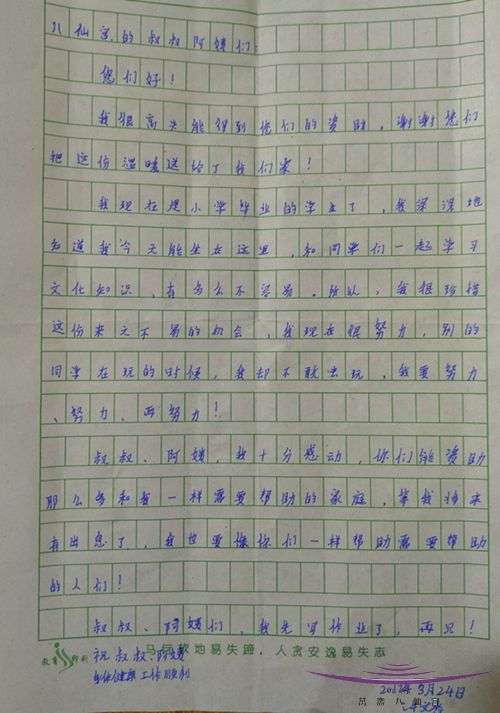 八仙宫的叔叔阿姨们:
您们好!
我很高兴能得到您们的资助,谢谢您们
把这份温暖送给了我们家!
我现在是小学毕业的学生了,我深深地
知道我今天能坐在这里,和同学们一起学习
文化知识,有多么不容易。所以,我很珍惜
这份来之不易的机会,我现在很努力,别的
同学在玩的时候,我却不敢出玩,我要努力
、努力、再努力!
叔叔、阿姨,我十分感动,你们能资助
那么多和我一样需要帮助的家庭,等我将来
有出息了,我也要像你们一样帮助需要帮助
的人们!
叔叔、阿姨们,我先写作业了,再见!
教育印刷 马行软地易失蹄,人贪安逸易失志
祝叔叔、阿姨
身体健康 工作顺利
3月24日
万斋八仙宫